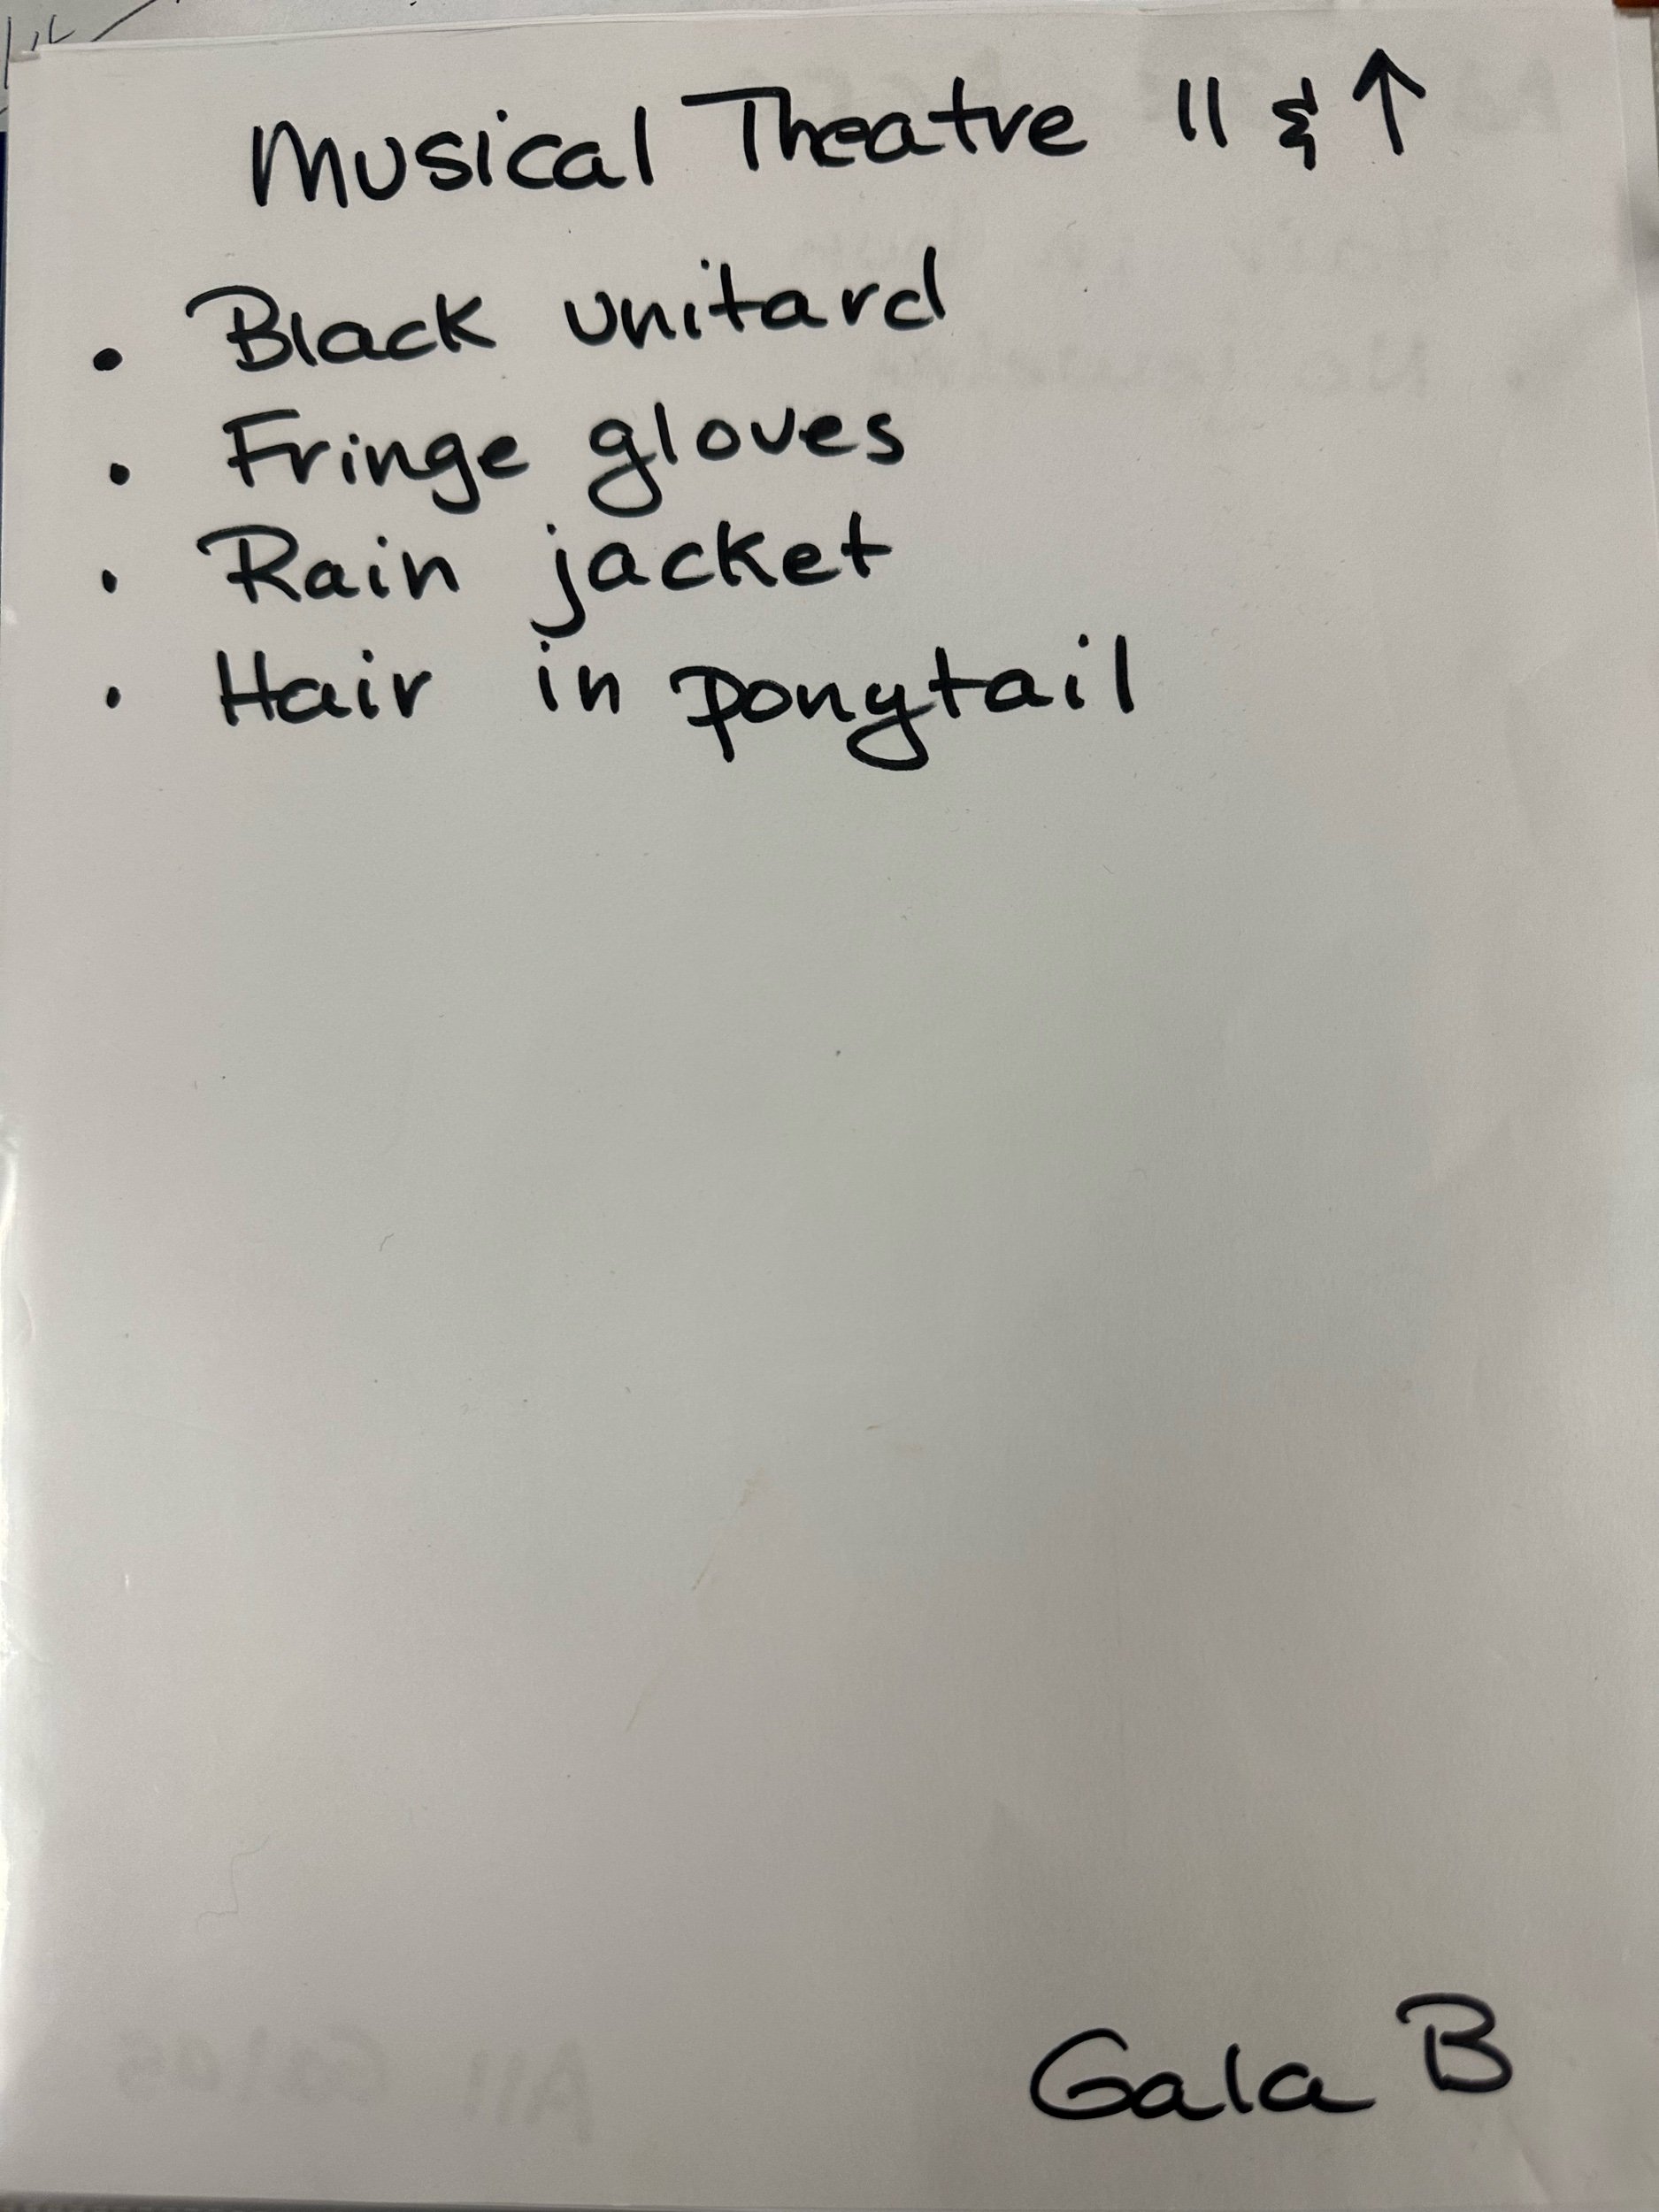 Musical Theatre 11 & ↑
• Black unitard
• Fringe gloves
• Rain jacket
• Hair in ponytail
Gala B
All Galas